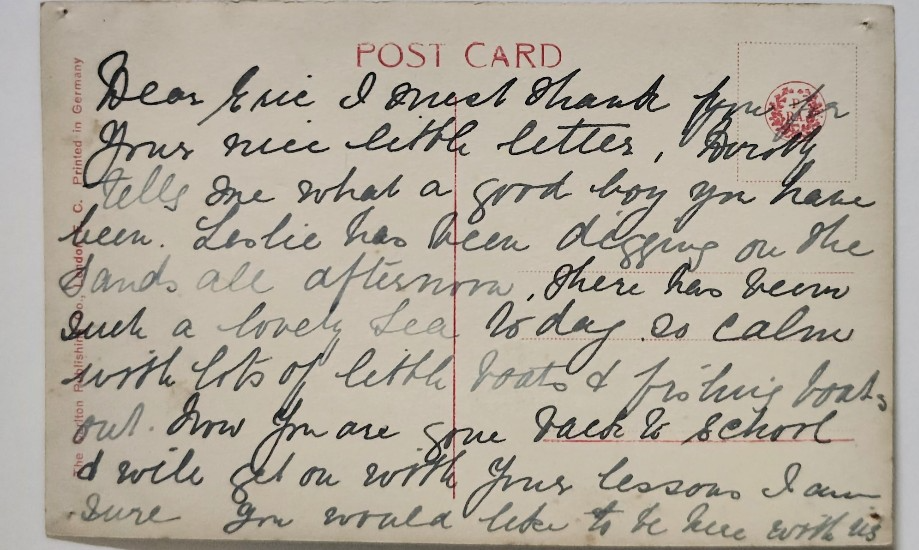 POST CARD
Dear Eric I must thank you for
Your nice little letter, Dorothy
tells me what a good boy you have
been. Leslie has been digging on the
Sands all afternoon, there has been
such a lovely Sea today so calm
with lots of little boats & fishing boats
out. Now You are gone back to School
& will get on with Your lessons I am
sure you would like to be here with us
The Publishing Co., London, E. C. Printed in Germany